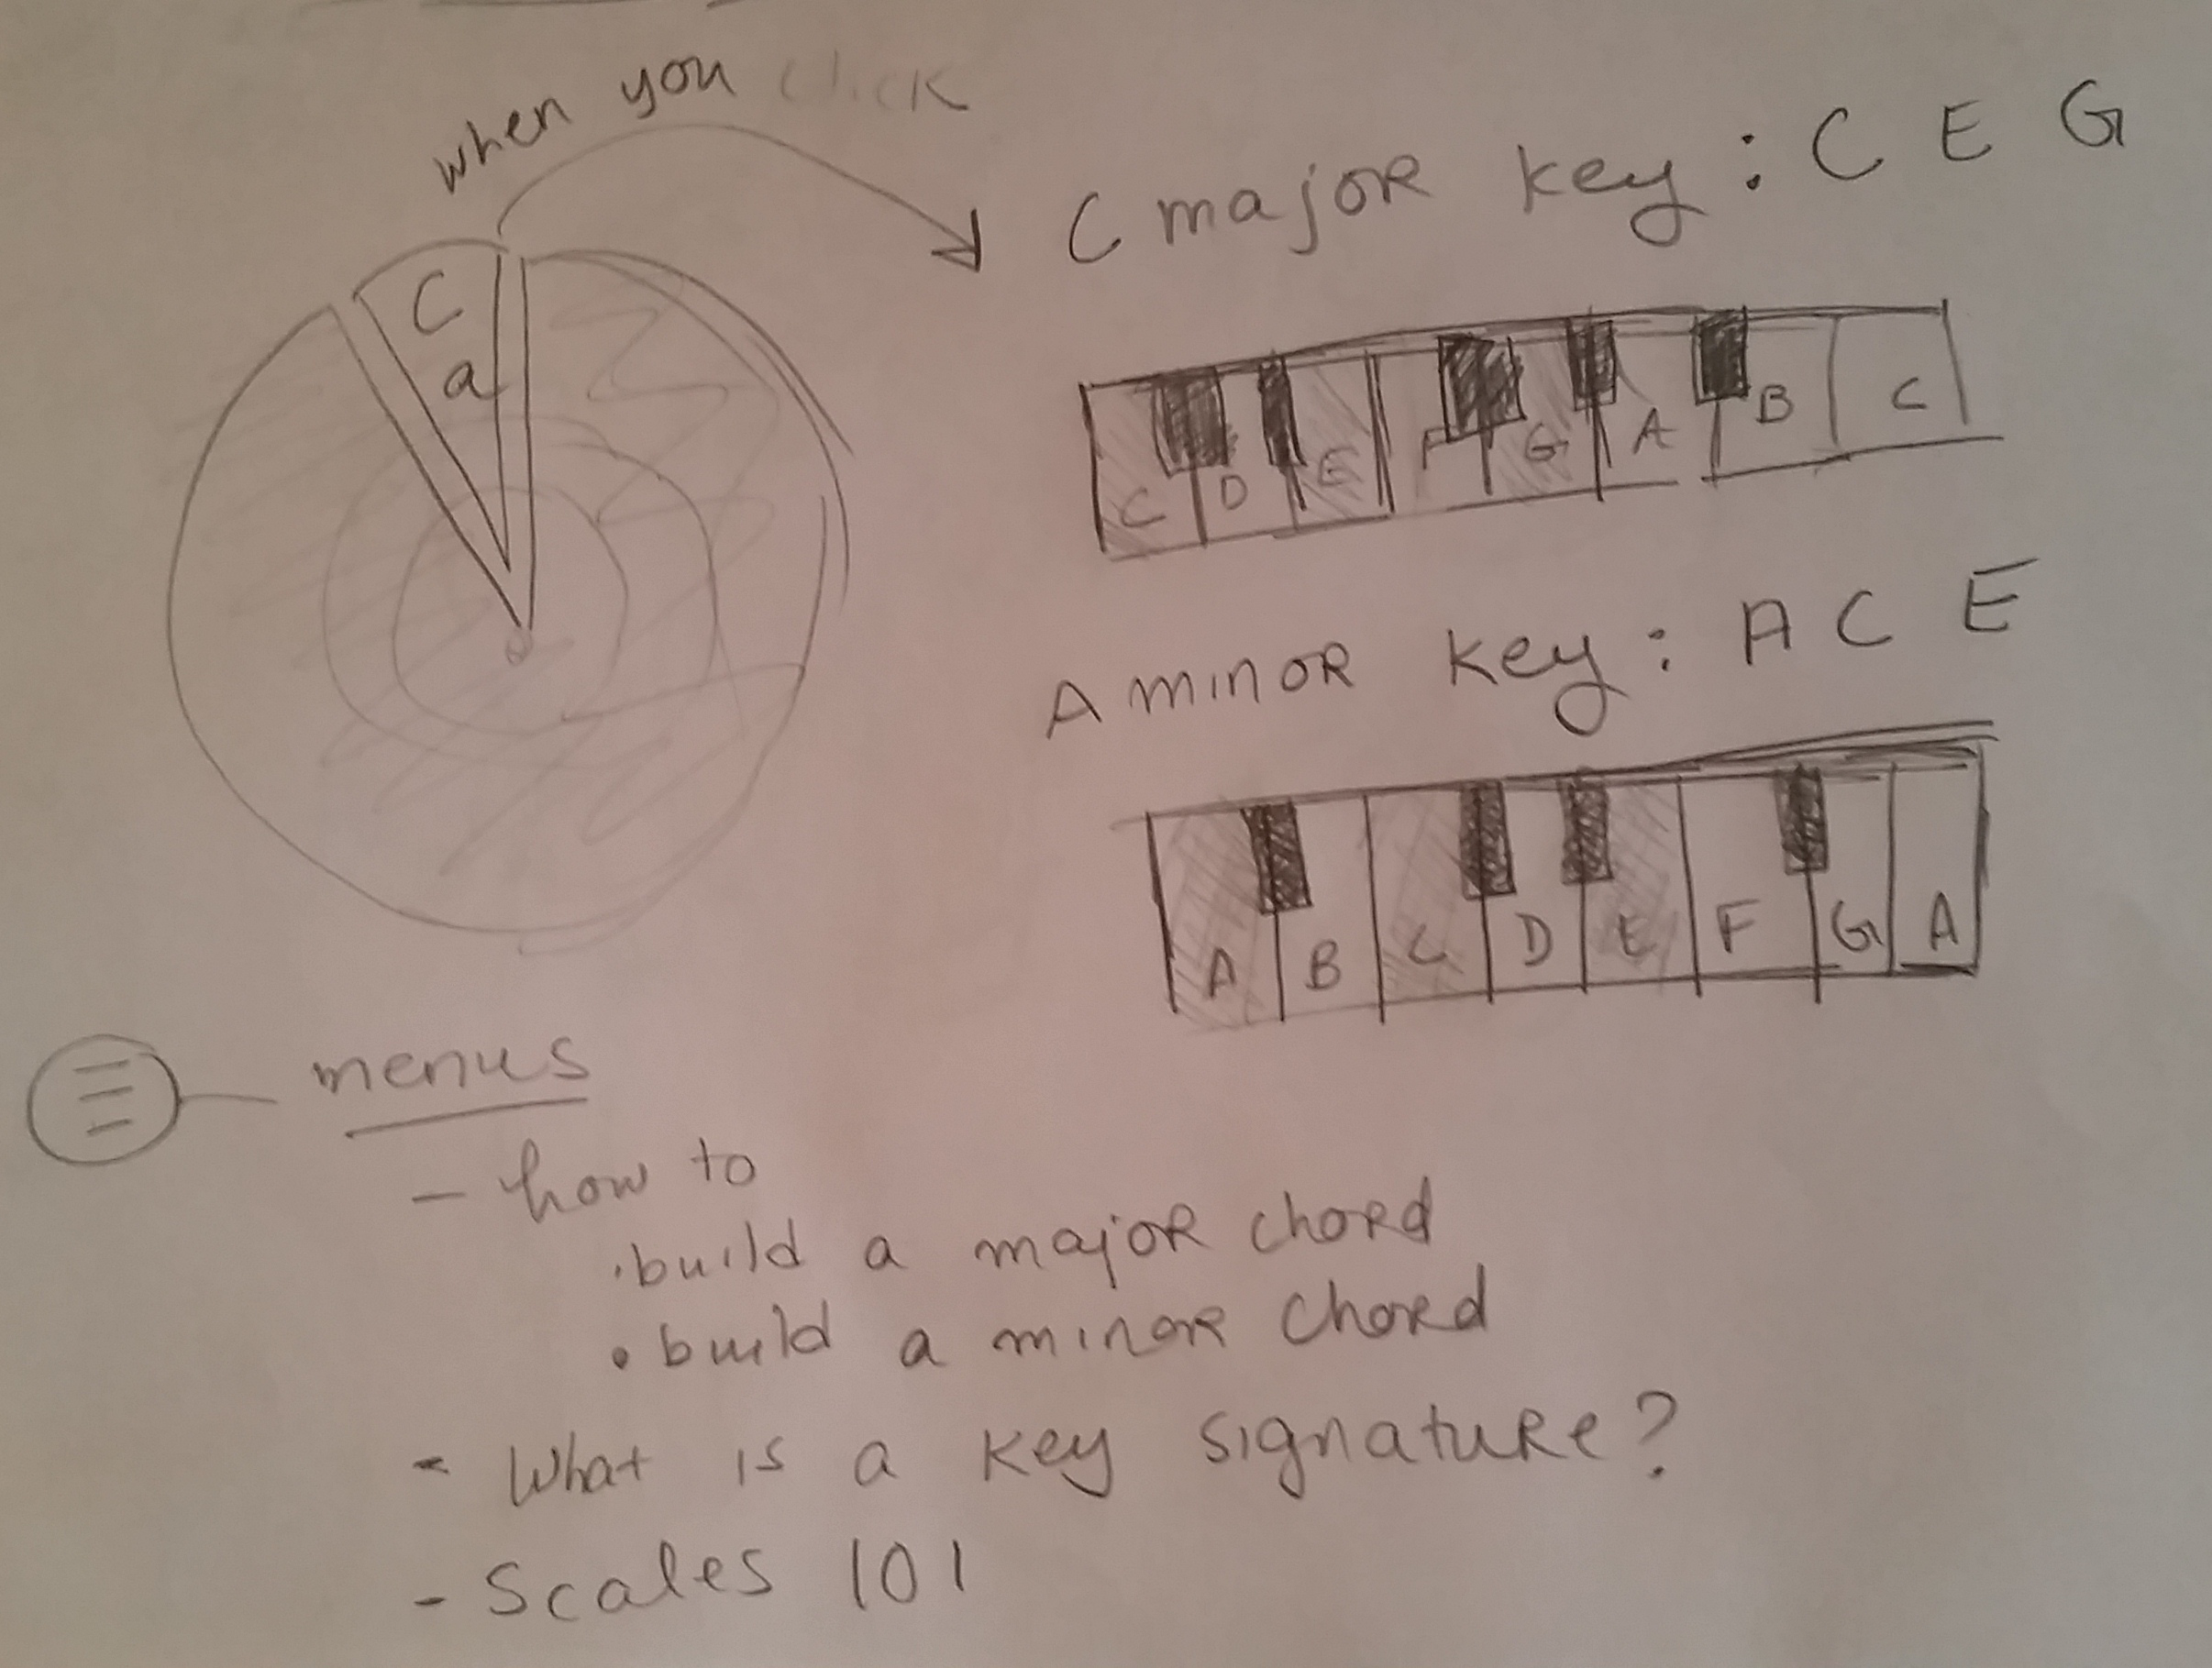 when you click
C
a
C major key: C E G
C D E F G A B C
A minor key: A C E
A B C D E F G A
menus
- how to
• build a major chord
• build a minor chord
- What is a key signature?
- Scales 101